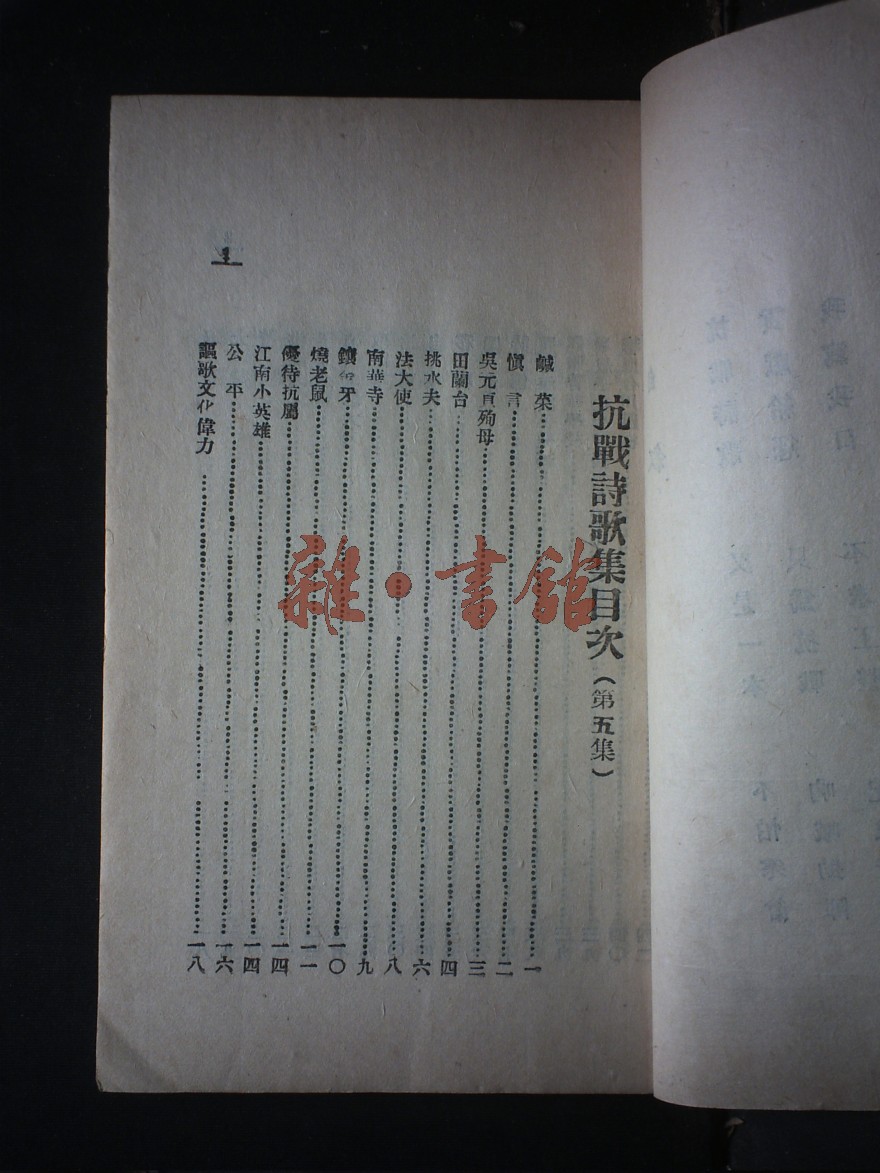 抗戰詩歌集目次（第五集）
鹹菜 一
愼言 二
吳元貞殉母 三
田蘭台 四
挑水夫 六
法大使 八
南華寺 九
鑲金牙 一〇
燒老鼠 一一
優待抗屬 一四
江南小英雄 一四
公平 一六
謳歌文化偉力 一八
1
雜·書館